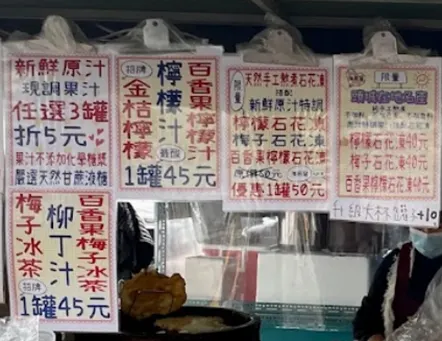 新鮮原汁
現調果汁
任選3罐
折5元
果汁不添加化學糖漿
嚴選天然甘蔗液糖
招牌
金桔檸檬
檸檬汁
百香果檸檬汁
1罐45元
限量
天然手工熬煮石花凍
搭配
新鮮原汁特調
檸檬石花凍
梅子石花凍
百香果檸檬石花凍
優惠1罐50元
限量
頭城在地名產
檸檬石花凍40元
梅子石花凍40元
百香果檸檬石花凍40元
+10
梅子冰茶
招牌
柳丁汁
百香果梅子冰茶
1罐45元